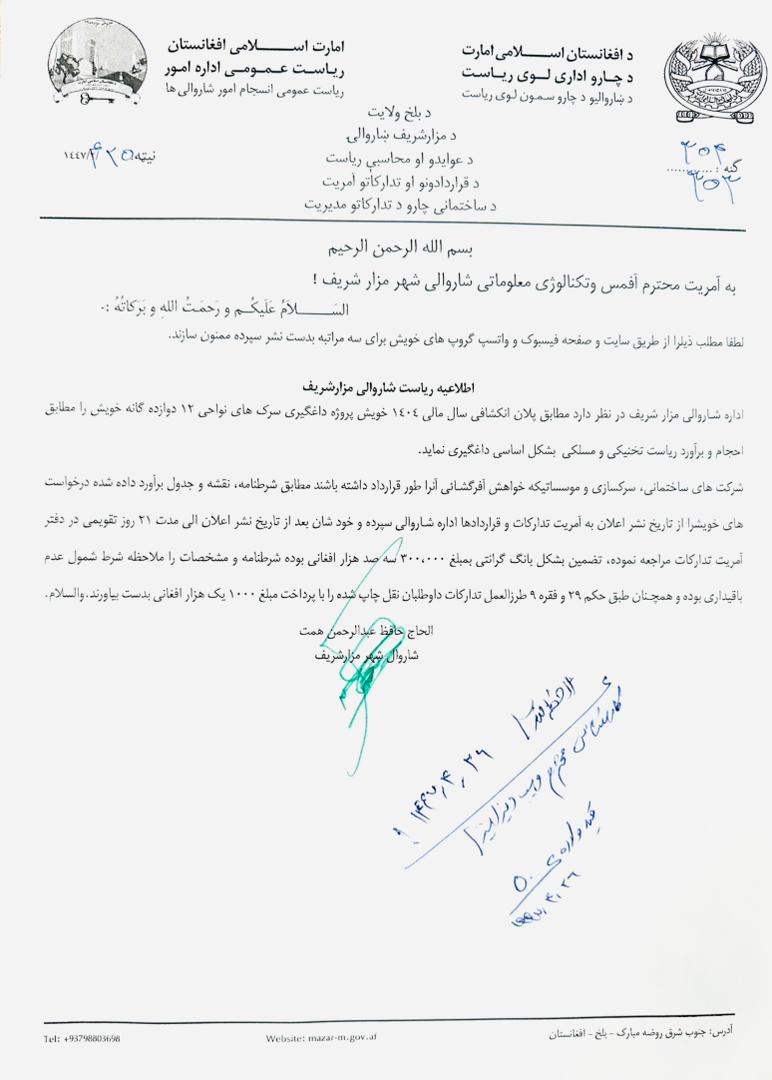 د افغانستان اســـــلامی امارت
د چارو اداری لوی ریـاست
د ښاروالیو د چارو سمون لوی ریاست
امارت اســـــلامی افغانستان
ریـاست عمـــومی اداره امور
ریاست عمومی انسجام امور شاروالی ها
د بلخ ولایت
د مزارشریف ښاروالۍ
د عوایدو او محاسبې ریاست
د قراردادونو او تدارکاتو آمریت
د ساختمانی چارو د تدارکاتو مدیریت
گڼه : ............
نیټه
بسم الله الرحمن الرحیم
به آمریت محترم آفمس وتکنالوژی معلوماتی شاروالی شهر مزار شریف !
السَـــــلاَمُ عَلَیکُـم و رَحمَـتُ اللهِ و بَرَکاتُهُ :-
لطفا مطلب ذیلرا از طریق سایت و صفحه فیسبوک و واتسپ گروپ های خویش برای سه مراتبه بدست نشر سپرده ممنون سازند.
اطلاعیه ریاست شاروالی مزارشریف
اداره شاروالی مزار شریف در نظر دارد مطابق پلان انکشافی سال مالی ۱۴۰۴ خویش پروژه داغگیری سرک های نواحی ۱۲ دوازده گانه خویش را مطابق
احجام و برآورد ریاست تخنیکی و مسلکی بشکل اساسی داغگیری نماید.
شرکت های ساختمانی، سرکسازی و موسساتیکه خواهش آفرگشائی آنرا طور قرارداد داشته باشند مطابق شرطنامه، نقشه و جدول برآورد داده شده درخواست
های خویشرا از تاریخ نشر اعلان به آمریت تدارکات و قراردادها اداره شاروالی سپرده و خود شان بعد از تاریخ نشر اعلان الی مدت ۲۱ روز تقویمی در دفتر
آمریت تدارکات مراجعه نموده، تضمین بشکل بانگ گرانتی بمبلغ ۳۰۰،۰۰۰ سه صد هزار افغانی بوده شرطنامه و مشخصات را ملاحظه شرط شمول عدم
باقیداری بوده و همچنان طبق حکم ۲۹ و فقره ۹ طرزالعمل تدارکات داوطلبان نقل چاپ شده را با پرداخت مبلغ ۱۰۰۰ یک هزار افغانی بدست بیاورند.والسلام.
الحاج حافظ عبدالرحمن همت
شاروال شهر مزارشریف
۱۴۴۷٫۴٫۲۶
آدرس: جنوب شرق روضه مبارک - بلخ - افغانستان
Website: mazar-m.gov.af
Tel: +93798803698